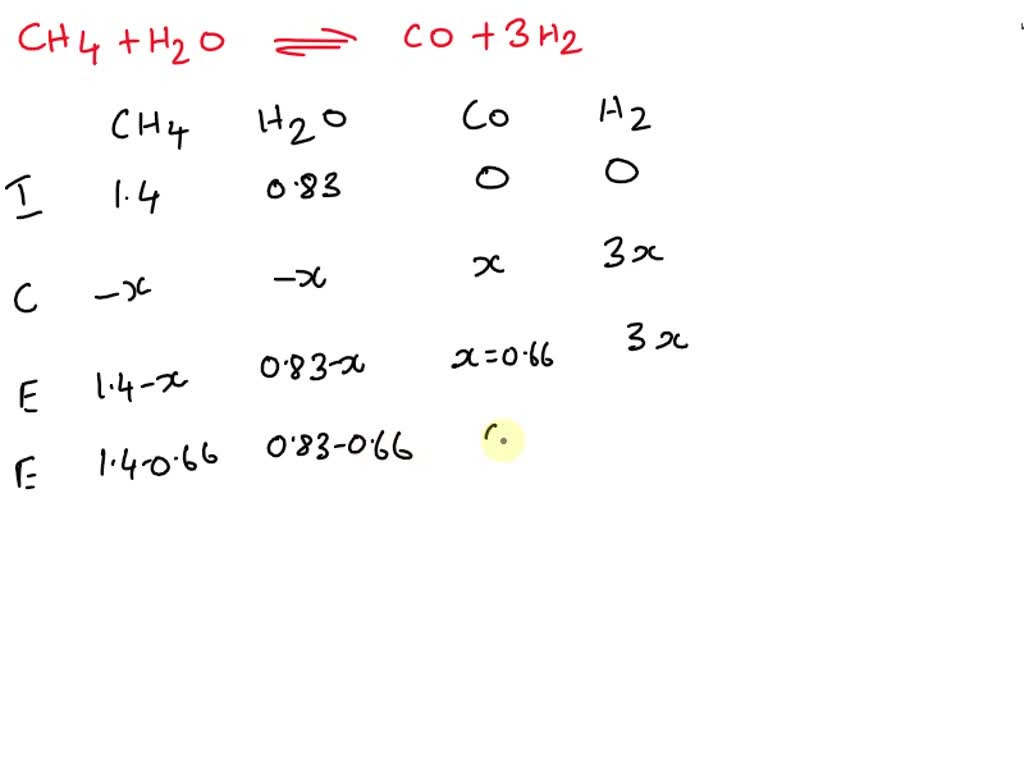 CH4 + H2O ⇌ CO + 3H2
CH4 H2O CO H2
I 1.4 0.83 0 0
C -x -x x 3x
E 1.4-x 0.83-x x=0.66 3x
E 1.4-0.66 0.83-0.66